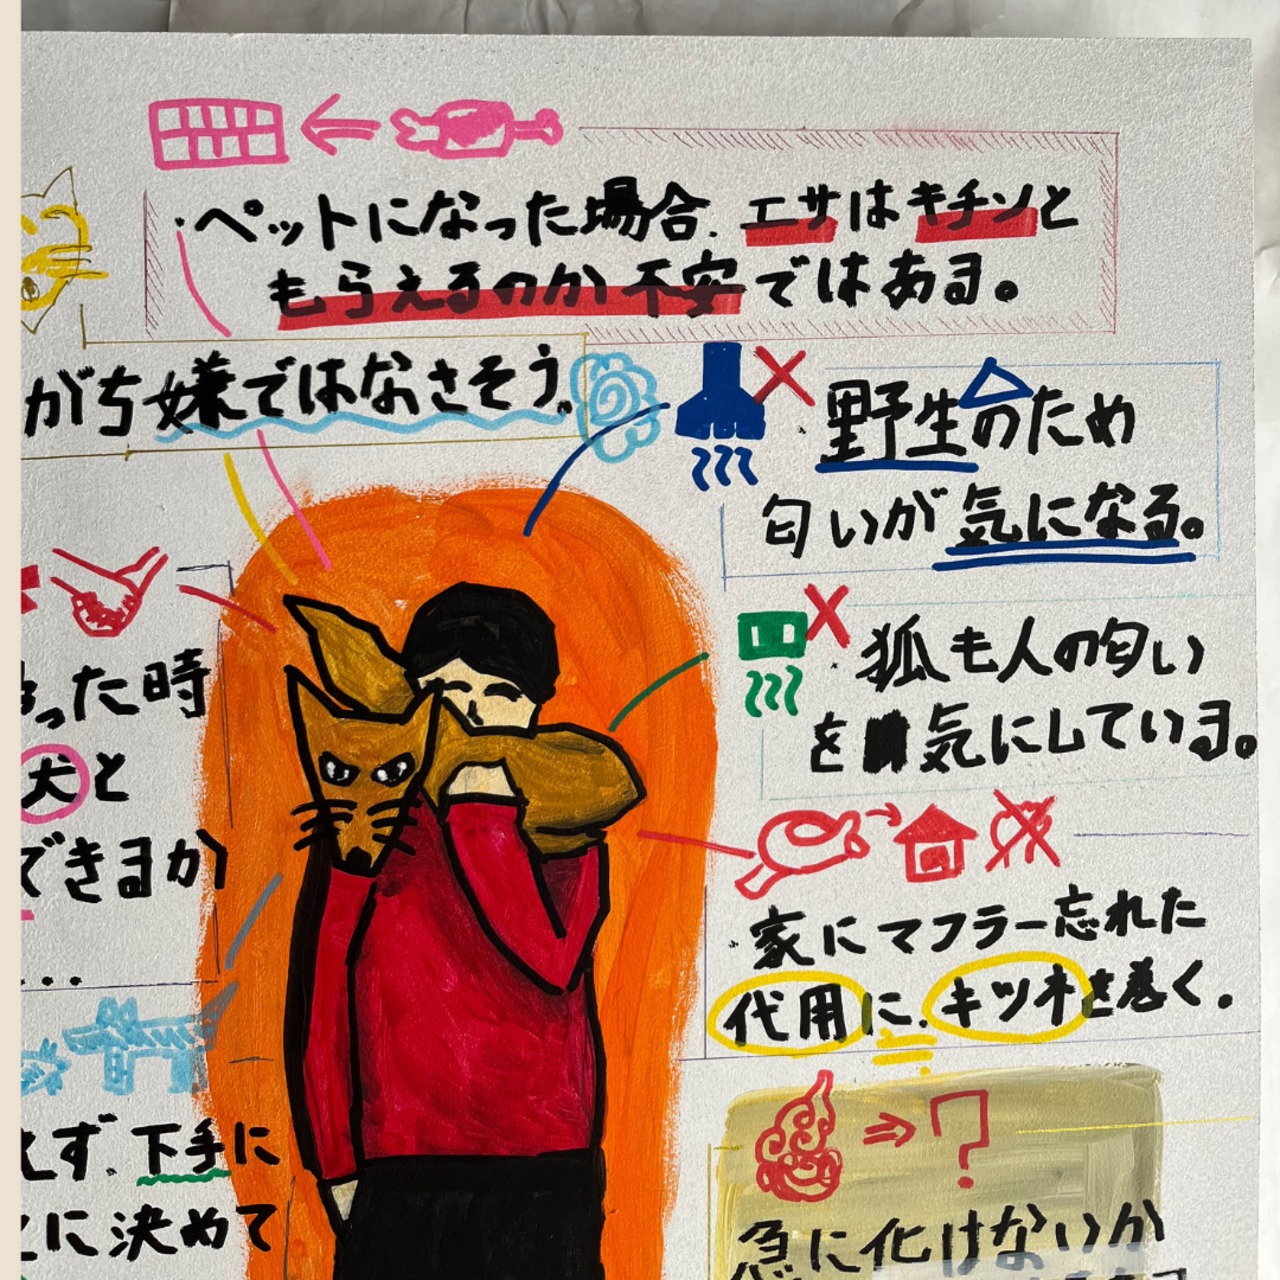 ・ペットになった場合、エサはキチンと
もらえるのか不安ではある。
がち嫌ではなさそう。
・野生のため
匂いが気になる。
・狐も人の匂い
を気にしている。
・家にマフラー忘れた
代用に、キツネを巻く。
急に化けないか
った時
犬と
できるか
...
えず、下手に
に決めて